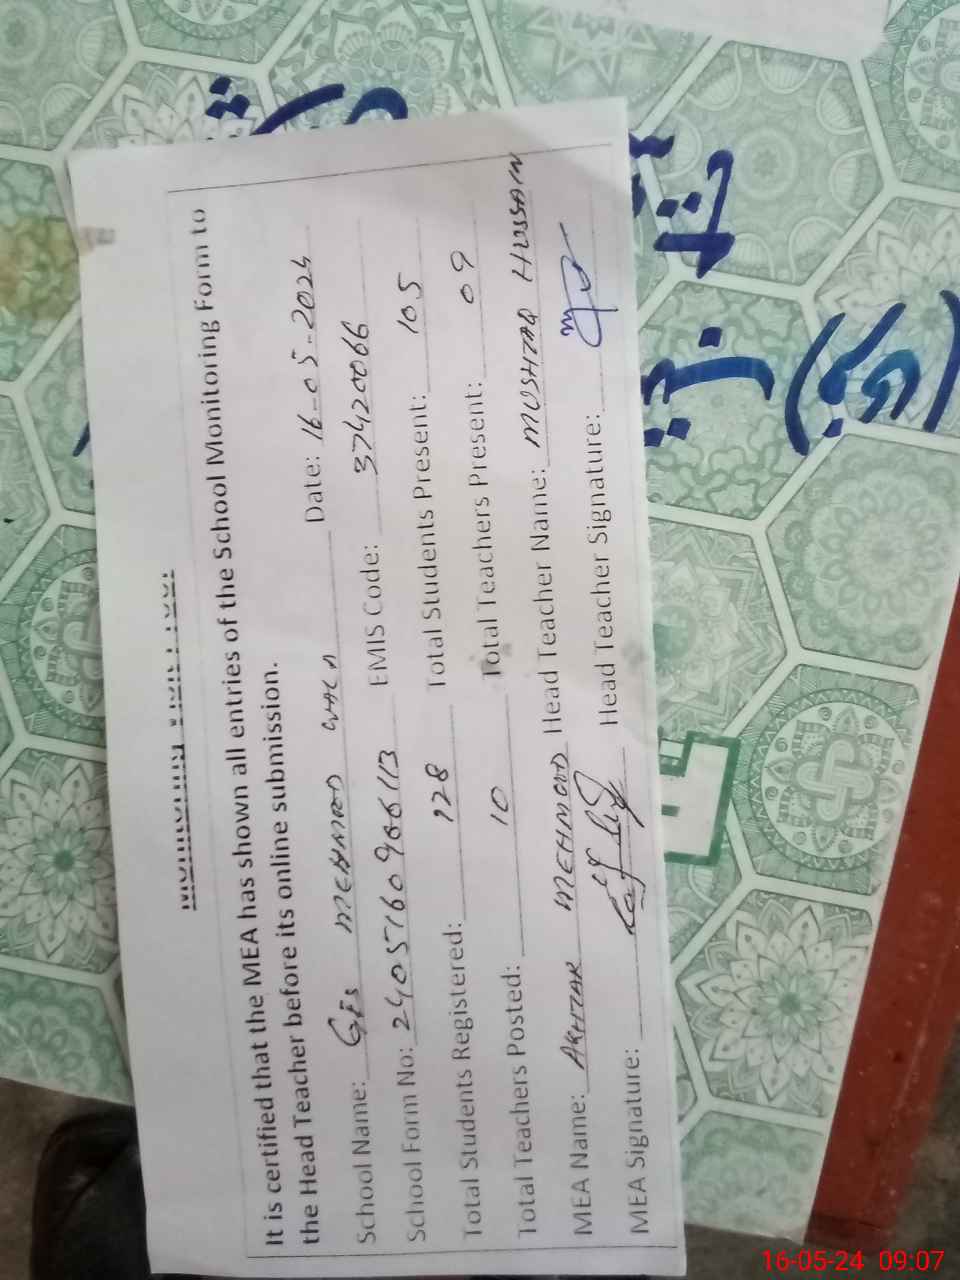 Monitoring Visit Proof
It is certified that the MEA has shown all entries of the School Monitoring Form to
the Head Teacher before its online submission.
School Name: GES MEHMOOD WALA Date: 16-05-2024
School Form No: 2405160966113 EMIS Code: 37420066
Total Students Registered: 128 Total Students Present: 105
Total Teachers Posted: 10 Total Teachers Present: 09
MEA Name: AKHTAR MEHMOOD Head Teacher Name: MUSHTAQ HUSSAIN
MEA Signature: Head Teacher Signature:
16-05-24 09:07